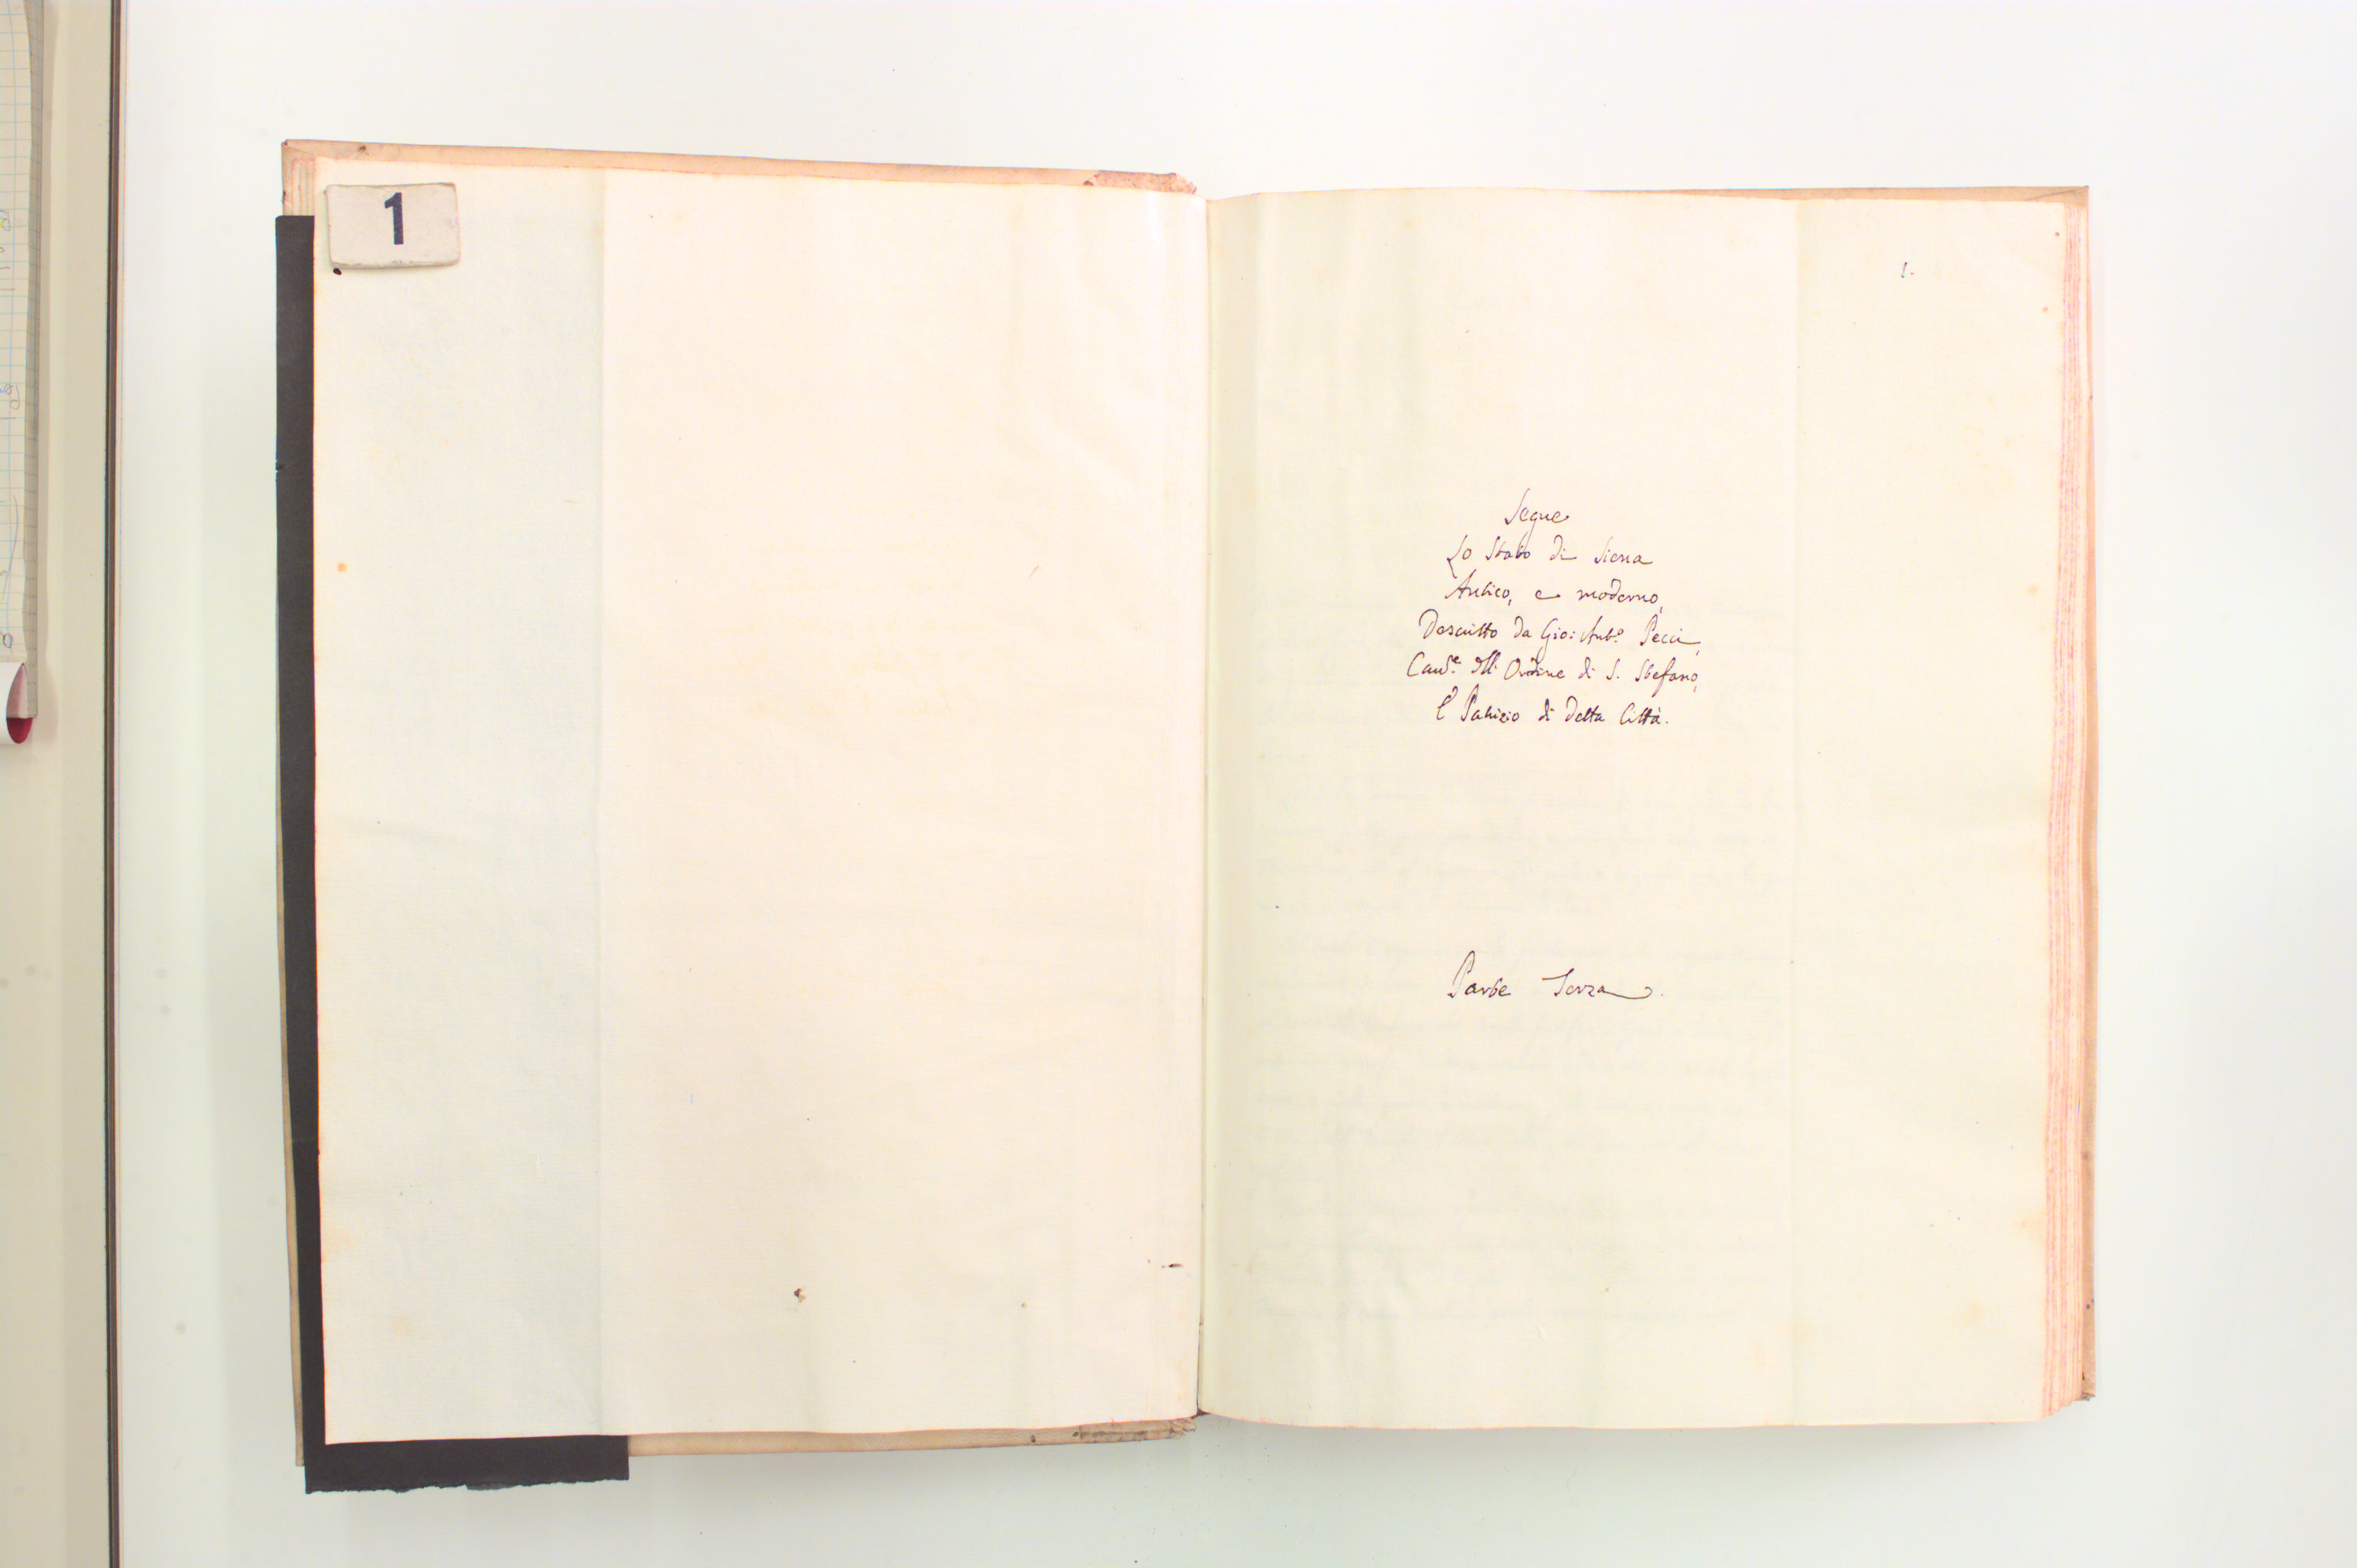 1
1.
Segue
Lo Stato di Siena
Antico, e moderno,
Descritto da Gio: Ant.º Pecci,
Cav.e dell' Ordine di S. Stefano,
e Patrizio di detta Città.
Parte Terza.